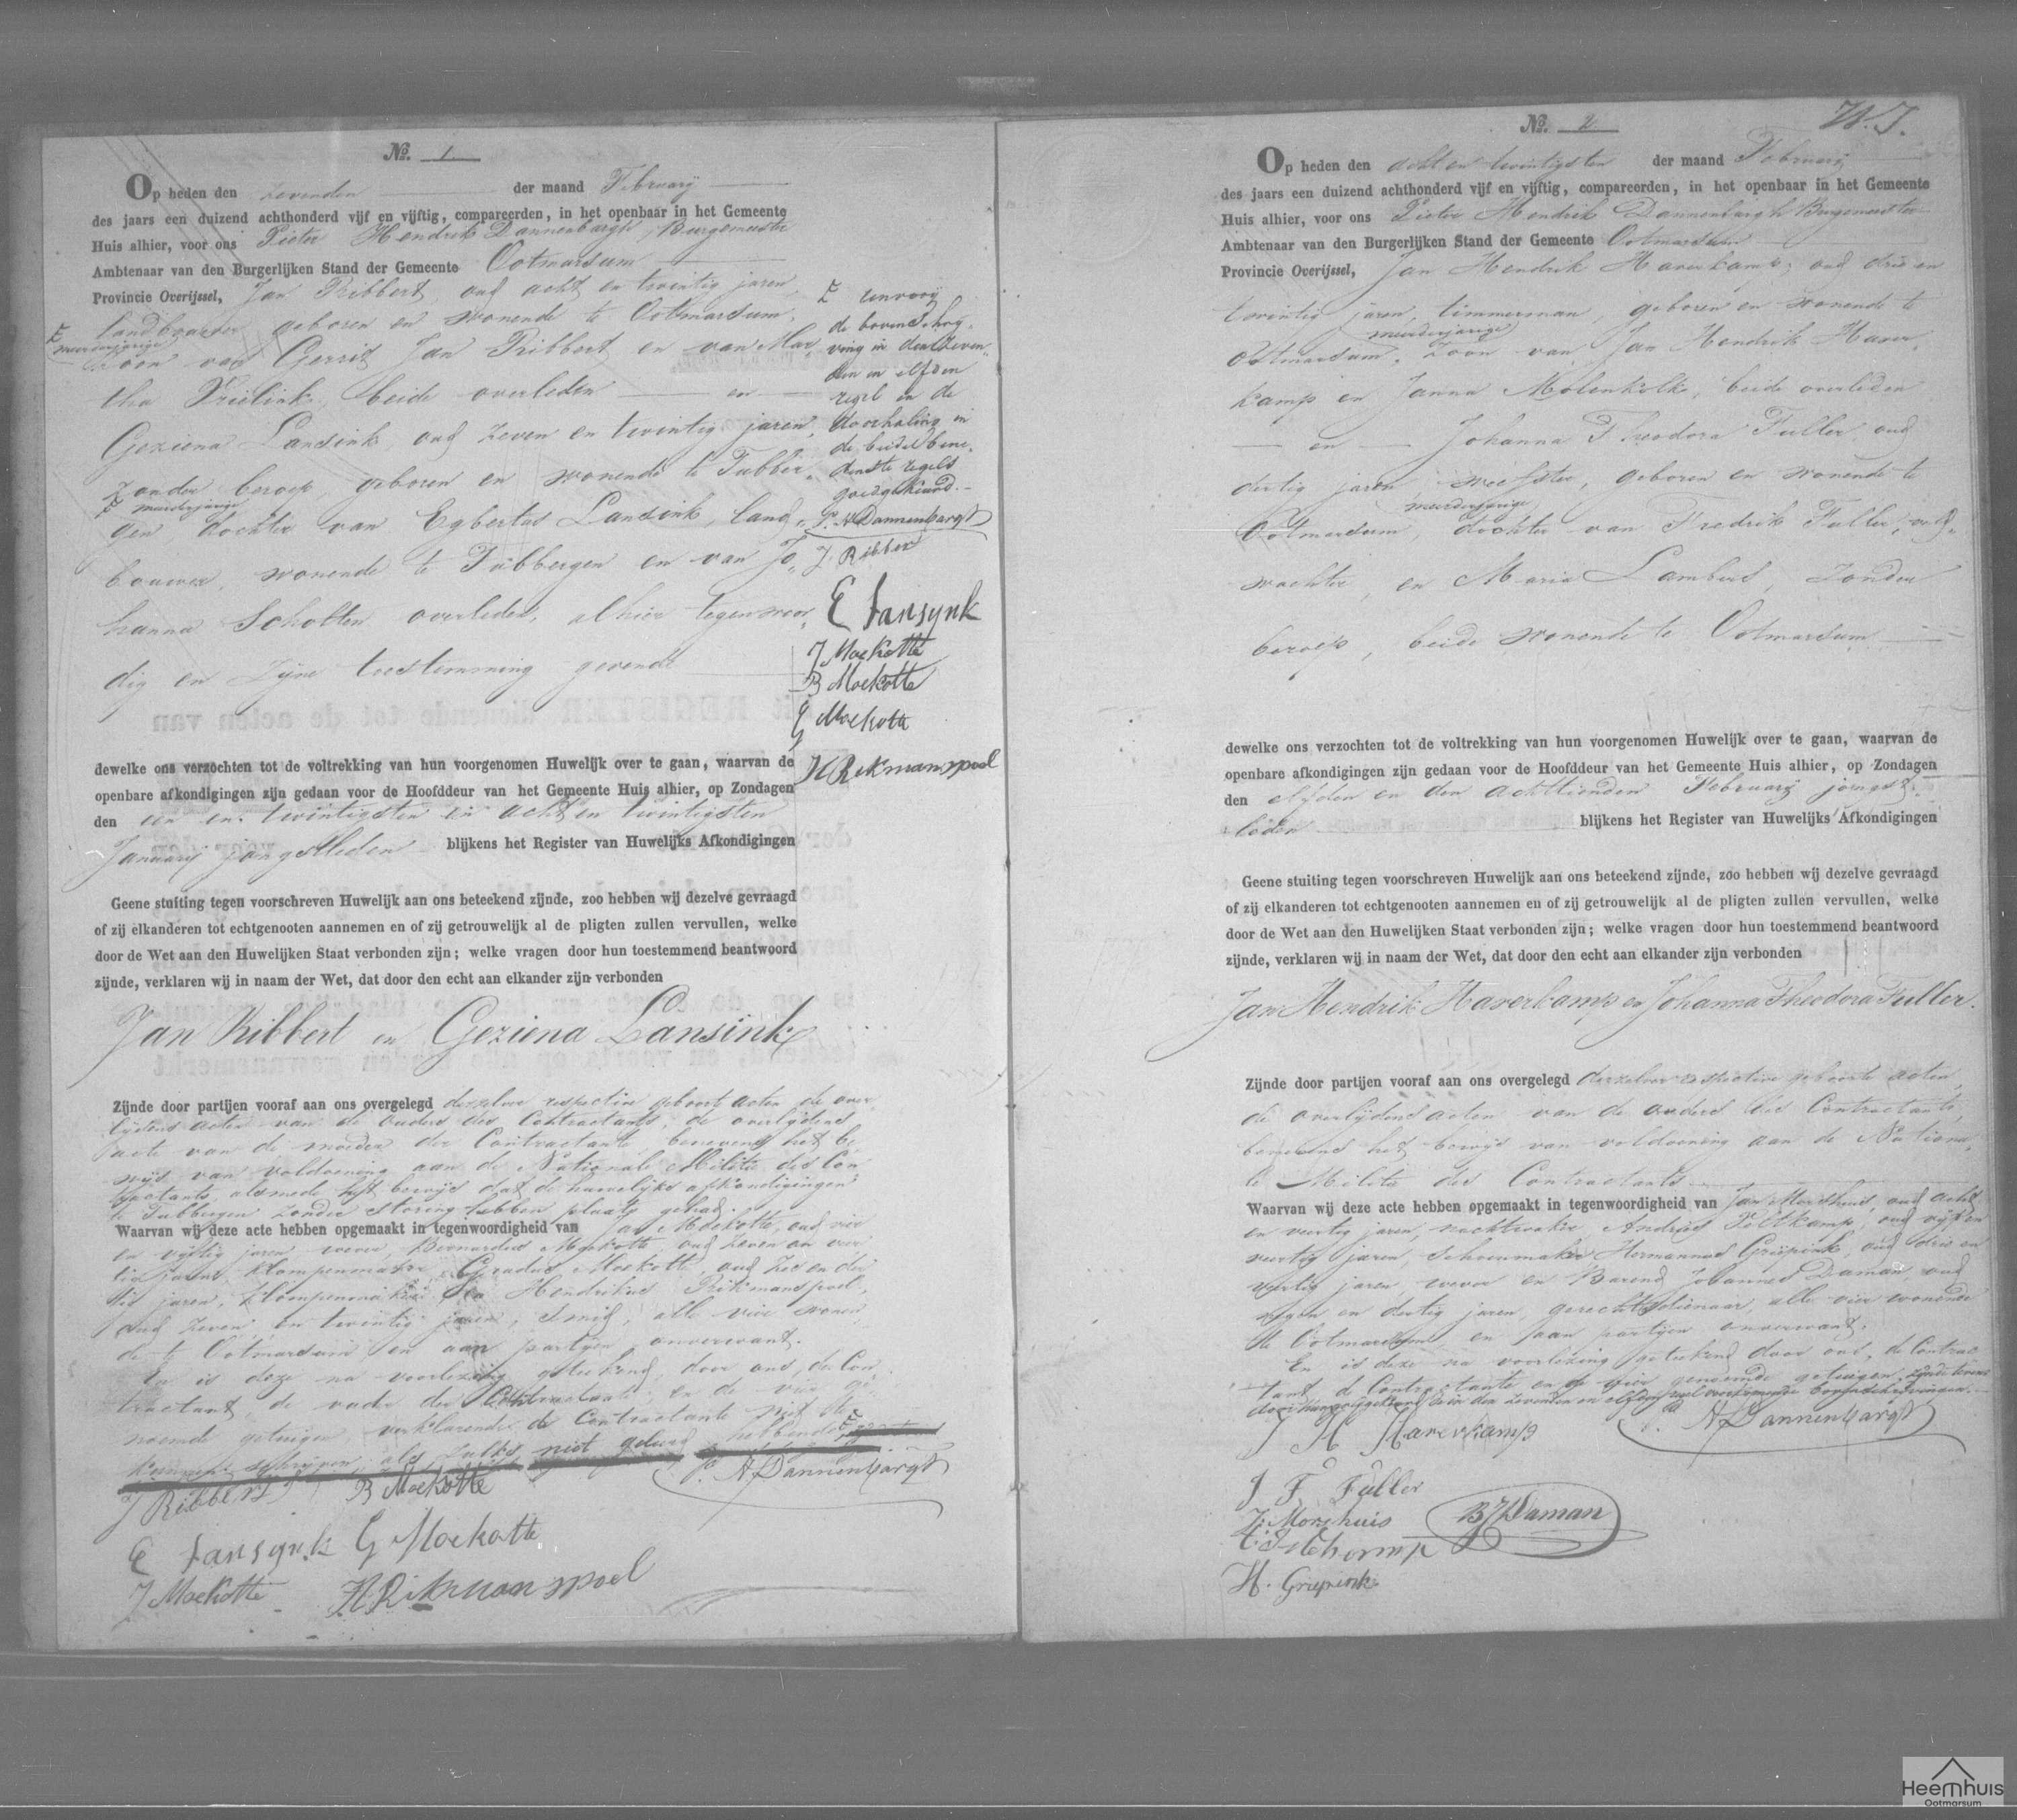 No. 1
Op heden den zevenden der maand February
des jaars een duizend achthonderd vijf en vijftig, compareerden, in het openbaar in het Gemeente
Huis alhier, voor ons Pieter Hendrik Dannenbargh, Burgemeester
Ambtenaar van den Burgerlijken Stand der Gemeente Ootmarsum
Provincie Overijssel, Jan Ribbert, oud acht en twintig jaren,
landbouwer geboren en wonende te Ootmarsum,
meerderjarige
zoon van Gerrit Jan Ribbert en van Mar
tha Frielink, beide overleden en
Geziena Lansink, oud zeven en twintig jaren,
zonder beroep, geboren en wonende te Tubber„
meerderjarige
gen dochter van Egbertus Lansink, land„
bouwer, wonende te Tubbergen en van Jo„
hanna Scholten overleden, alhier tegenwoor„
dig en zijne toestemming gevende
de bovenschry„
ving in den zeven„
den en elfden
regel en de
doorhaling in
de beide bene„
denste regels
goedgekeurd.
P. H Dannenbargh
J Ribbert
E Lansynk
J Moekotte
B Moekotte
G Moekotte
H Rikmanspoel
dewelke ons verzochten tot de voltrekking van hun voorgenomen Huwelijk over te gaan, waarvan de
openbare afkondigingen zijn gedaan voor de Hoofddeur van het Gemeente Huis alhier, op Zondagen
den een en twintigsten en acht en twintigsten
January jongstleden blijkens het Register van Huwelijks Afkondigingen
Geene stuiting tegen voorschreven Huwelijk aan ons beteekend zijnde, zoo hebben wij dezelve gevraagd
of zij elkanderen tot echtgenooten aannemen en of zij getrouwelijk al de pligten zullen vervullen, welke
door de Wet aan den Huwelijken Staat verbonden zijn; welke vragen door hun toestemmend beantwoord
zijnde, verklaren wij in naam der Wet, dat door den echt aan elkander zijn verbonden
Jan Ribbert en Geziena Lansink
Zijnde door partijen vooraf aan ons overgelegd derzelver respective geboorte acten de over
lijdens acten van de ouders des Contractants, de overlijdens
acte van de moeder der Contractante, benevens het be
wijs van voldoening aan de Nationale Militie des Con
tractants, alsmede het bewijs dat de huwelijks afkondigingen
te Tubbergen zonder storing hebben plaats gehad.
Waarvan wij deze acte hebben opgemaakt in tegenwoordigheid van Jan Moekotte, oud vier
en vijftig jaren, wever, Bernardus Moekotte, oud zeven en veer
tig jaren, klompenmaker, Gradus Moekotte, oud zes en der
tig jaren, klompenmaker en Hendrikus Rikmanspoel,
oud zeven en twintig jaren, smid, alle vier wonen
de te Ootmarsum en aan partijen onverwant.
En is deze na voorlezing geteekend door ons, de Con
tractant, de vader der Contractante en de vier ge
noemde getuigen verklarende de Contractante niet te
kunnen schrijven, als zulks niet geleerd hebbende,
P. H Dannenbargh
J Ribbert
B Moekotte
E Lansynk
G Moekotte
J Moekotte
H Rikmanspoel
No. 2
Op heden den acht en twintigsten der maand February
des jaars een duizend achthonderd vijf en vijftig, compareerden, in het openbaar in het Gemeente
Huis alhier, voor ons Pieter Hendrik Dannenbargh Burgemeester
Ambtenaar van den Burgerlijken Stand der Gemeente Ootmarsum
Provincie Overijssel, Jan Hendrik Haverkamp, oud drie en
twintig jaren, timmerman, geboren en wonende te
meerderjarige
Ootmarsum, zoon van Jan Hendrik Haver„
kamp en Janna Molenkolk, beide overleden
en Johanna Theodora Fuller, oud
dertig jaren, geboren en wonende te
meerderjarige
Ootmarsum, dochter van Fredrik Fuller,
wachter, en Maria Lambers, zonder
beroep, beide wonende te Ootmarsum
dewelke ons verzochten tot de voltrekking van hun voorgenomen Huwelijk over te gaan, waarvan de
openbare afkondigingen zijn gedaan voor de Hoofddeur van het Gemeente Huis alhier, op Zondagen
den elfden en den achttienden February jongst„
leden blijkens het Register van Huwelijks Afkondigingen
Geene stuiting tegen voorschreven Huwelijk aan ons beteekend zijnde, zoo hebben wij dezelve gevraagd
of zij elkanderen tot echtgenooten aannemen en of zij getrouwelijk al de pligten zullen vervullen, welke
door de Wet aan den Huwelijken Staat verbonden zijn; welke vragen door hun toestemmend beantwoord
zijnde, verklaren wij in naam der Wet, dat door den echt aan elkander zijn verbonden
Jan Hendrik Haverkamp en Johanna Theodora Fuller.
Zijnde door partijen vooraf aan ons overgelegd derzelver respective geboorte acten,
de overlijdens acten van de ouders des Contractants,
benevens het bewijs van voldoening aan de Nationa„
le Militie des Contractants
Waarvan wij deze acte hebben opgemaakt in tegenwoordigheid van Jan Morshuis, oud acht
en veertig jaren, nachtwaker, Andries Veltkamp, oud vijf en
veertig jaren, schoenmaker Hermannus Griepink, oud drie en
veertig jaren, wever en Barend Johannes Daman, oud
negen en dertig jaren, geregtsdienaar, alle vier wonende
te Ootmarsum en aan partijen onverwant.
En is deze na voorlezing geteekend door ons, de Contrac
tant, de Contractante en de vier genoemde getuigen,
P. H Dannenbargh
J H Haverkamp
J F Fuller
J: Morshuis
B J Daman
H. Griepink
Heemhuis
Ootmarsum